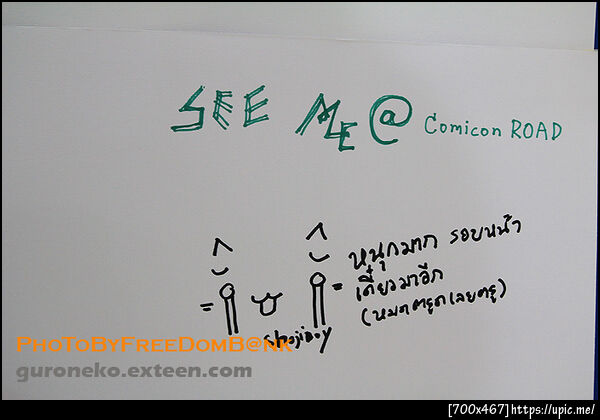 SEE ME @ Comicon ROAD
หนุกมาก รอบหน้า
เดี๋ยวมาอีก
(หมดตรูดเลยตรู)
shojiboy
PHoToByFReeDomB@nk
guroneko.exteen.com
[700x467]https://upic.me/